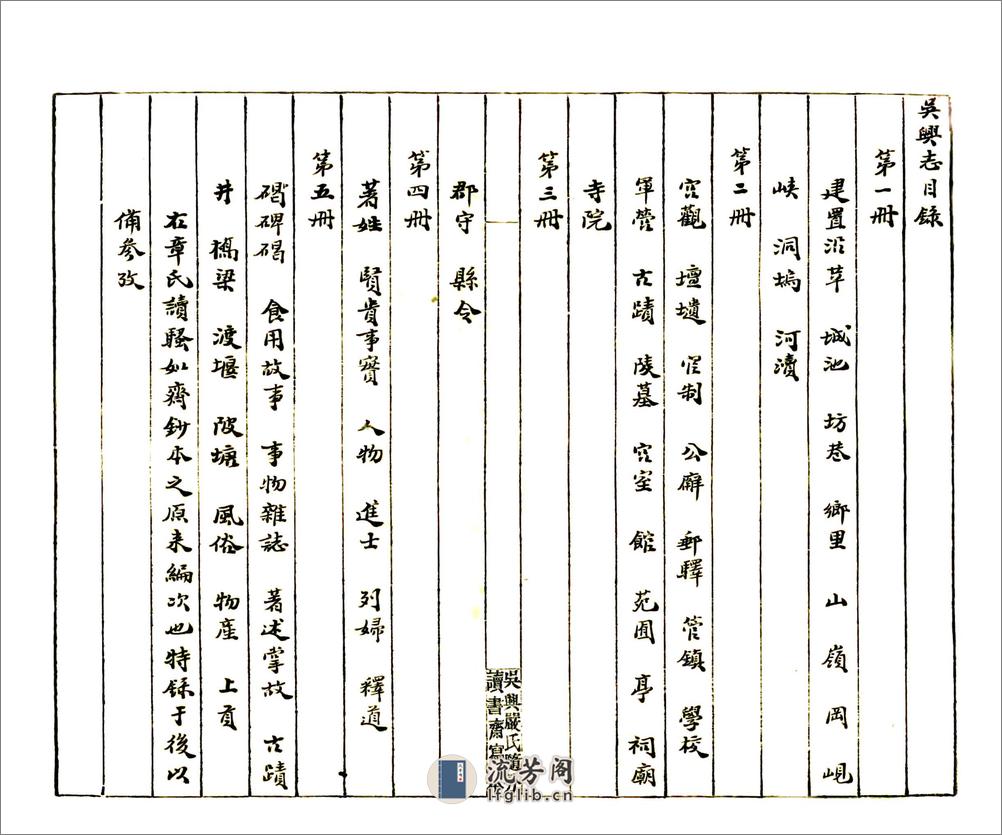 吳興志目錄
第一冊
建置沿革 城池 坊巷 鄉里 山 嶺 岡 峴
峽 洞塢 河瀆
第二冊
宮觀 壇壝 官制 公廨 郵驛 管鎮 學校
軍營 古蹟 陵墓 宮室 館 苑囿 亭 祠廟
寺院
第三冊
郡守 縣令
第四冊
著姓 賢貴事實 人物 進士 列婦 釋道
第五冊
碣碑碣 食用故事 事物雜誌 著述掌故 古蹟
井 橋梁 渡堰 陂塘 風俗 物產 上貢
右章氏讀騷如齋鈔本之原來編次也特錄于後以
備參攷
吳興嚴氏隨
讀書齋寫
流芳阁
lfglib.cn